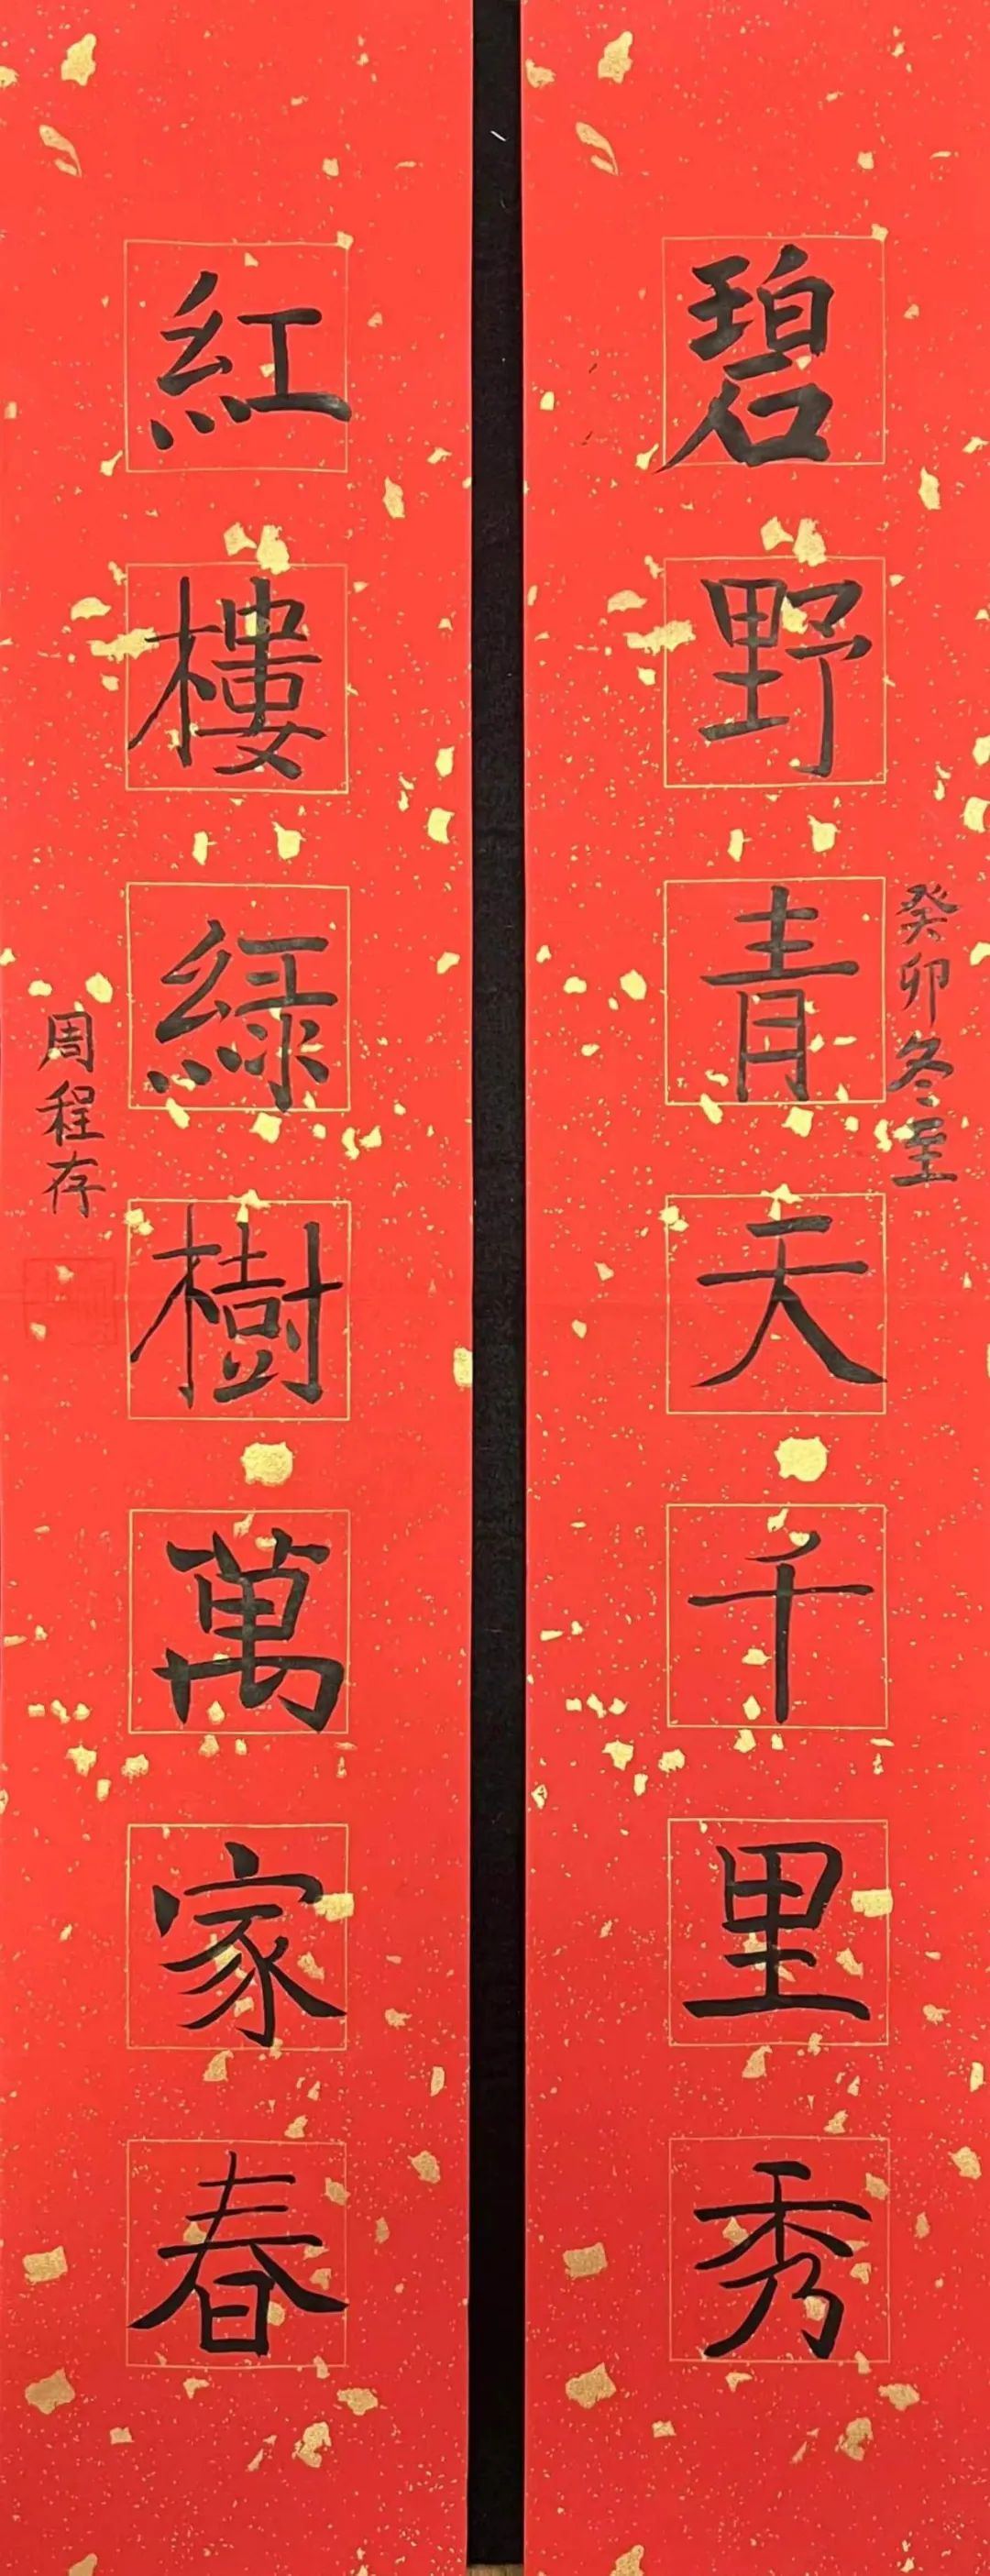 癸卯冬至
碧野青天千里秀
紅樓綠樹萬家春
周程存